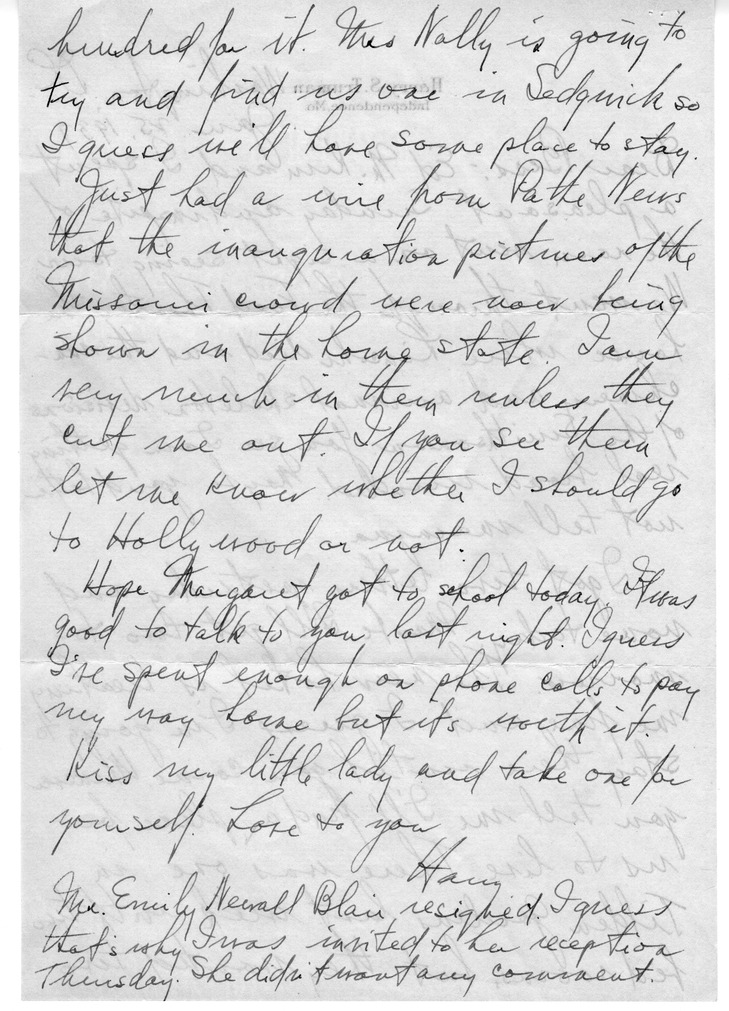 hundred for it. Mrs Nally is going to
try and find us one in Sedgwick so
I guess we'll have some place to stay.
Just had a wire from Pathe News
that the inauguration pictures of the
Missouri crowd were now being
shown in the home state. I am
very much in them unless they
cut me out. If you see them
let me know whether I should go
to Hollywood or not.
Hope Margaret got to school today. It was
good to talk to you last night. I guess
I've spent enough on phone calls to pay
my way home but it's worth it.
Kiss my little lady and take one for
yourself. Love to you
Harry
Mrs. Emily Newall Blair resigned. I guess
that's why I was invited to her reception
Thursday. She didn't want any comment.